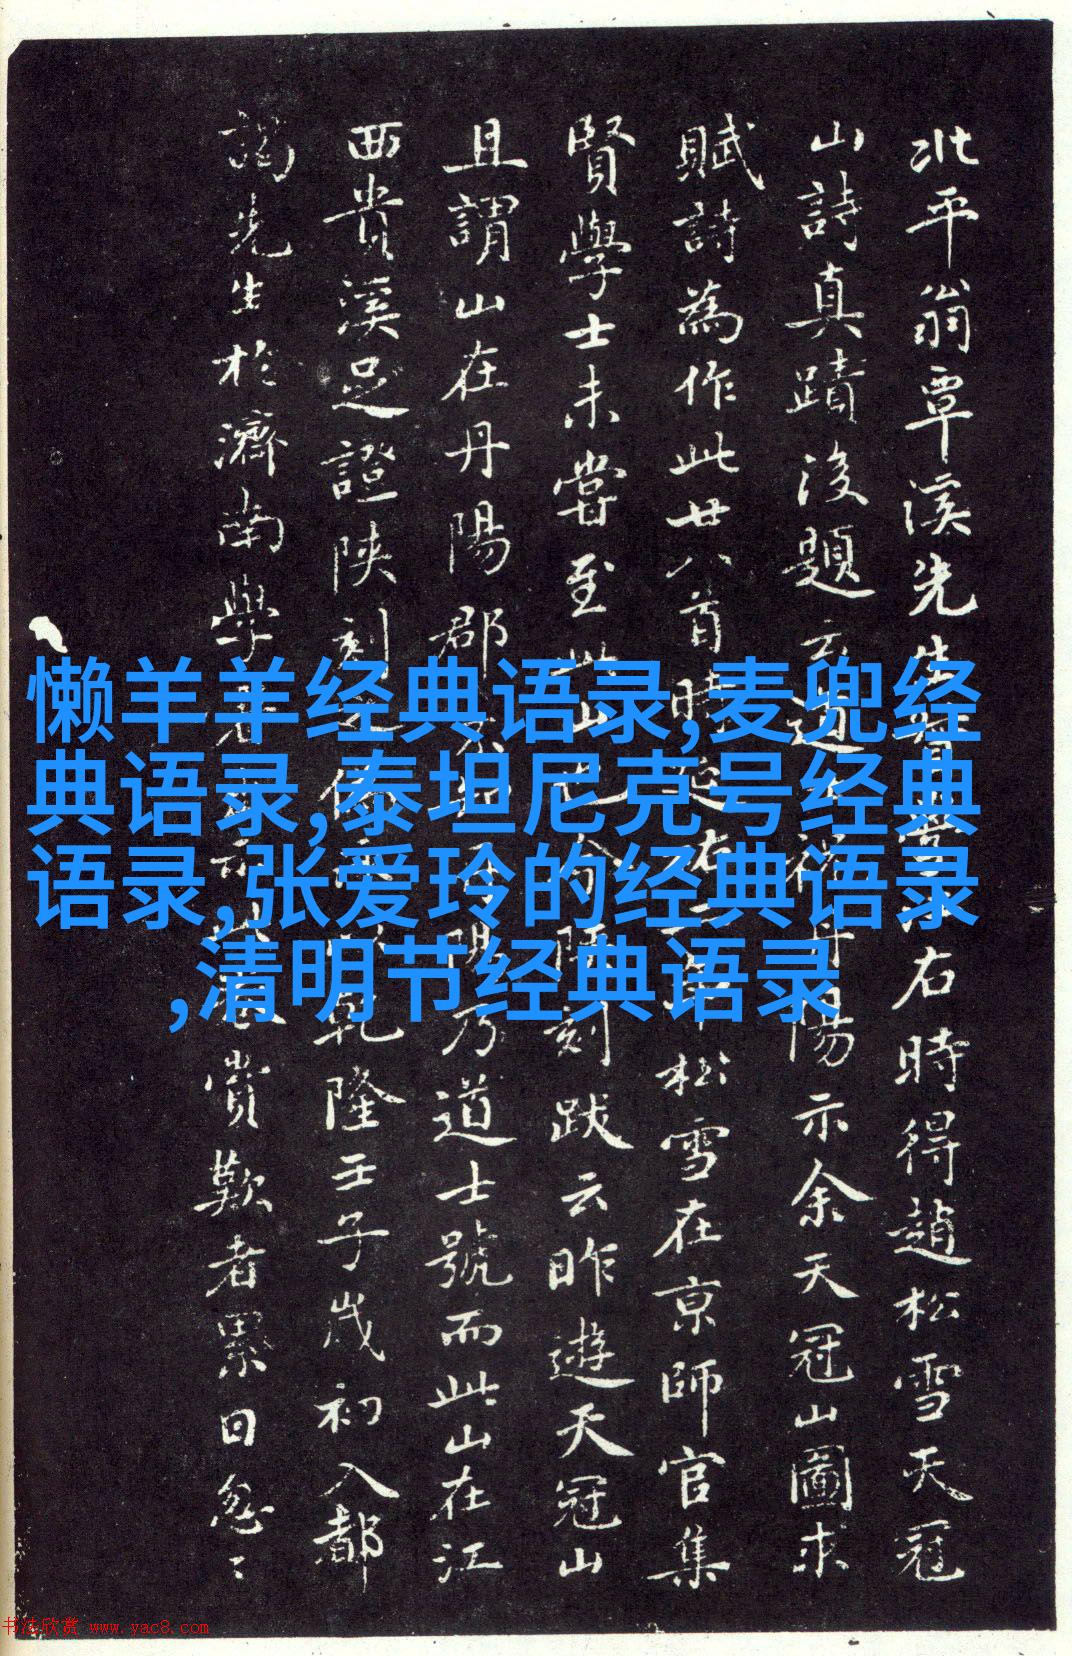 北平翁覃溪先生右時得趙松雪天冠
山詩真蹟後題云道陽示余天冠山圖求
賦詩為作此廿八首時延松雪在京師官集
賢學士未嘗至此山今刻跋云昨遊天冠山
且謂山在丹陽郡乃道士號而此山在江
西貴溪足證陝刻乾隆壬子歲初入都
謁先生於濟南學賞歎者累日怱〻
懒羊羊经典语录,麦兜经
典语录,泰坦尼克号经典
语录,张爱玲的经典语录
,清明节经典语录
书法欣赏 www.yac8.com